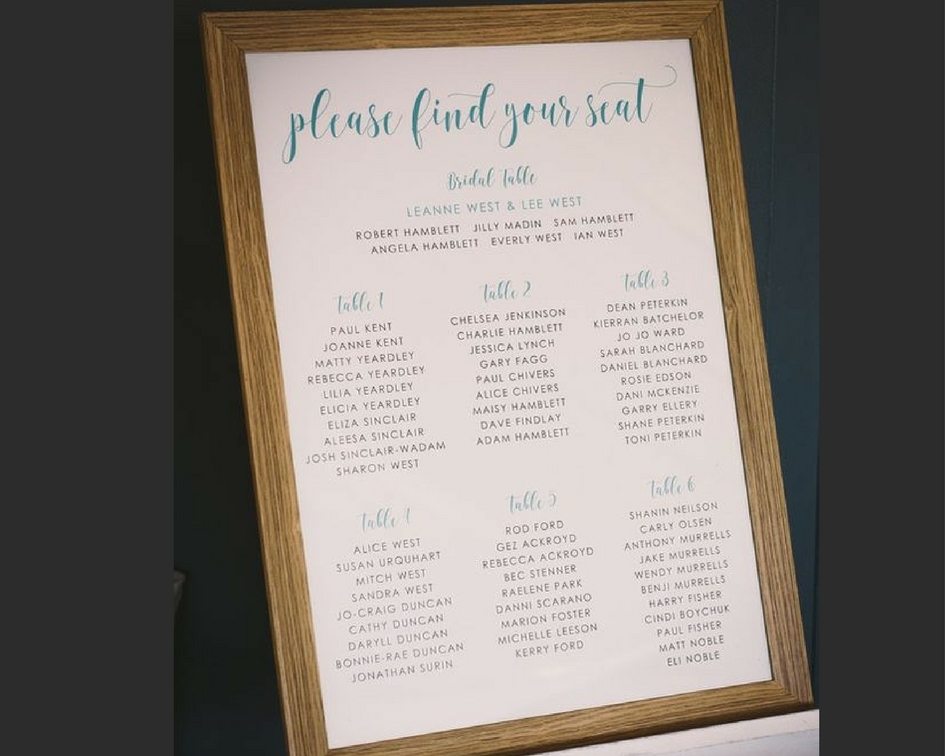 please find your seat
Bridal Table
LEANNE WEST & LEE WEST
ROBERT HAMBLETT JILLY MADIN SAM HAMBLETT
ANGELA HAMBLETT EVERLY WEST IAN WEST
Table 1
PAUL KENT
JOANNE KENT
MATTY YEARDLEY
REBECCA YEARDLEY
LILIA YEARDLEY
ELICIA YEARDLEY
ELIZA SINCLAIR
ALEESA SINCLAIR
JOSH SINCLAIR-WADAM
SHARON WEST
Table 2
CHELSEA JENKINSON
CHARLIE HAMBLETT
JESSICA LYNCH
GARY FAGG
PAUL CHIVERS
ALICE CHIVERS
MAISY HAMBLETT
DAVE FINDLAY
ADAM HAMBLETT
Table 3
DEAN PETERKIN
KIERRAN BATCHELOR
JO JO WARD
SARAH BLANCHARD
DANIEL BLANCHARD
ROSIE EDSON
DANI MCKENZIE
GARRY ELLERY
SHANE PETERKIN
TONI PETERKIN
Table 4
ALICE WEST
SUSAN URQUHART
MITCH WEST
SANDRA WEST
JO-CRAIG DUNCAN
CATHY DUNCAN
DARYLL DUNCAN
BONNIE-RAE DUNCAN
JONATHAN SURIN
Table 5
ROD FORD
GEZ ACKROYD
REBECCA ACKROYD
BEC STENNER
RAELENE PARK
DANNI SCARANO
MARION FOSTER
MICHELLE LEESON
KERRY FORD
Table 6
SHANIN NEILSON
CARLY OLSEN
ANTHONY MURRELLS
JAKE MURRELLS
WENDY MURRELLS
BENJI MURRELLS
HARRY FISHER
CINDI BOYCHUK
PAUL FISHER
MATT NOBLE
ELI NOBLE